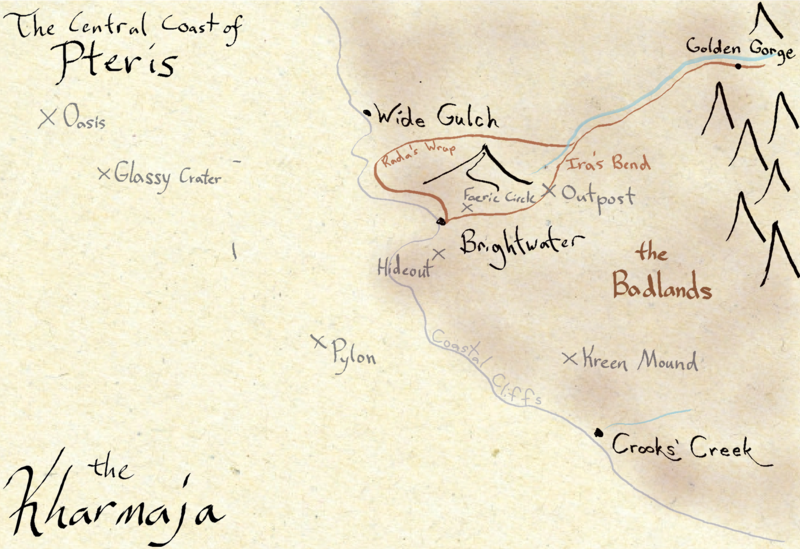 The Central Coast of
Pteris
Golden Gorge
Oasis
Wide Gulch
Rada's Wrap
Ira's Bend
Glassy Crater
Faerie Circle
Outpost
Brightwater
the
Badlands
Hideout
Pylon
Coastal Cliffs
Kreen Mound
Crooks' Creek
the
Kharmaja